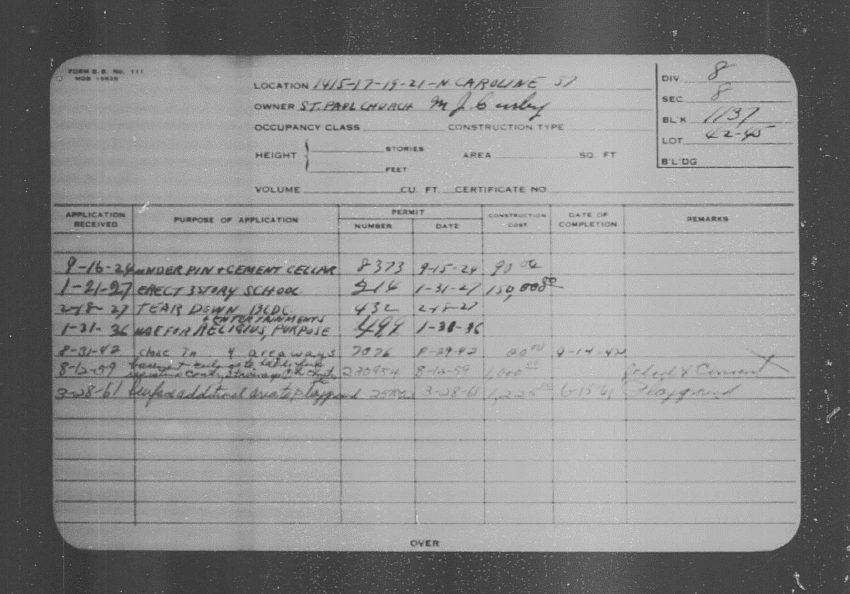 FORM B.B. No. 111
LOCATION 1415-17-19-21-N CAROLINE ST
OWNER ST. PAUL CHURCH M J
OCCUPANCY CLASS CONSTRUCTION TYPE
HEIGHT STORIES AREA SQ. FT
FEET
VOLUME CU. FT. CERTIFICATE NO
DIV. 8
SEC 8
BL'K 1137
LOT 42-45
B'L'DG
APPLICATION RECEIVED PURPOSE OF APPLICATION PERMIT NUMBER DATE CONSTRUCTION COST DATE OF COMPLETION REMARKS
9-16-24 UNDERPIN + CEMENT CELLAR 8373 9-15-24 90 00
1-21-27 ERECT 3 STORY SCHOOL 214 1-31-27 150,000 00
2-18-27 TEAR DOWN BLDG 432 2-18-27
+ ENTERTAINMENTS
1-31-36 USE FOR RELIGIUS, PURPOSE 499 1-30-36
8-31-42 close in 4 areaways 7076 8-29-42 9-14-42
8-12-59 230954 8-12-59 1,000 00 School & Convent
3-28-61 additional area to playground 3-28-61 1,225 6-15-61 Playground
OVER